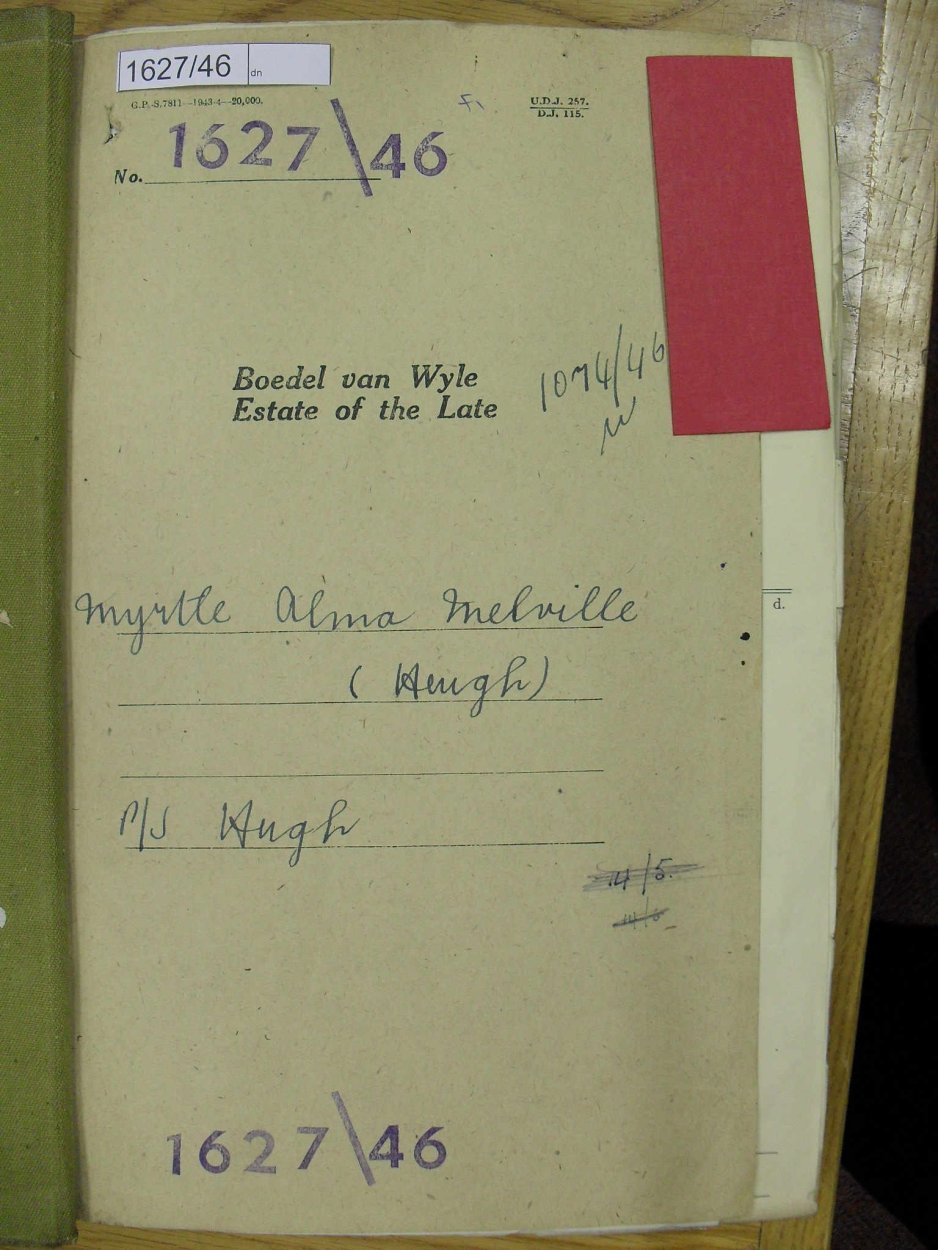 1627/46 dn
G.P.-S.7811—1943-4—20,000.
U.D.J. 257.
D.J. 115.
No. 1627\46
Boedel van Wyle
Estate of the Late
1074/46
Myrtle Alma Melville
(Heugh)
P/S Hugh
14/5.
14/5
d.
1627\46